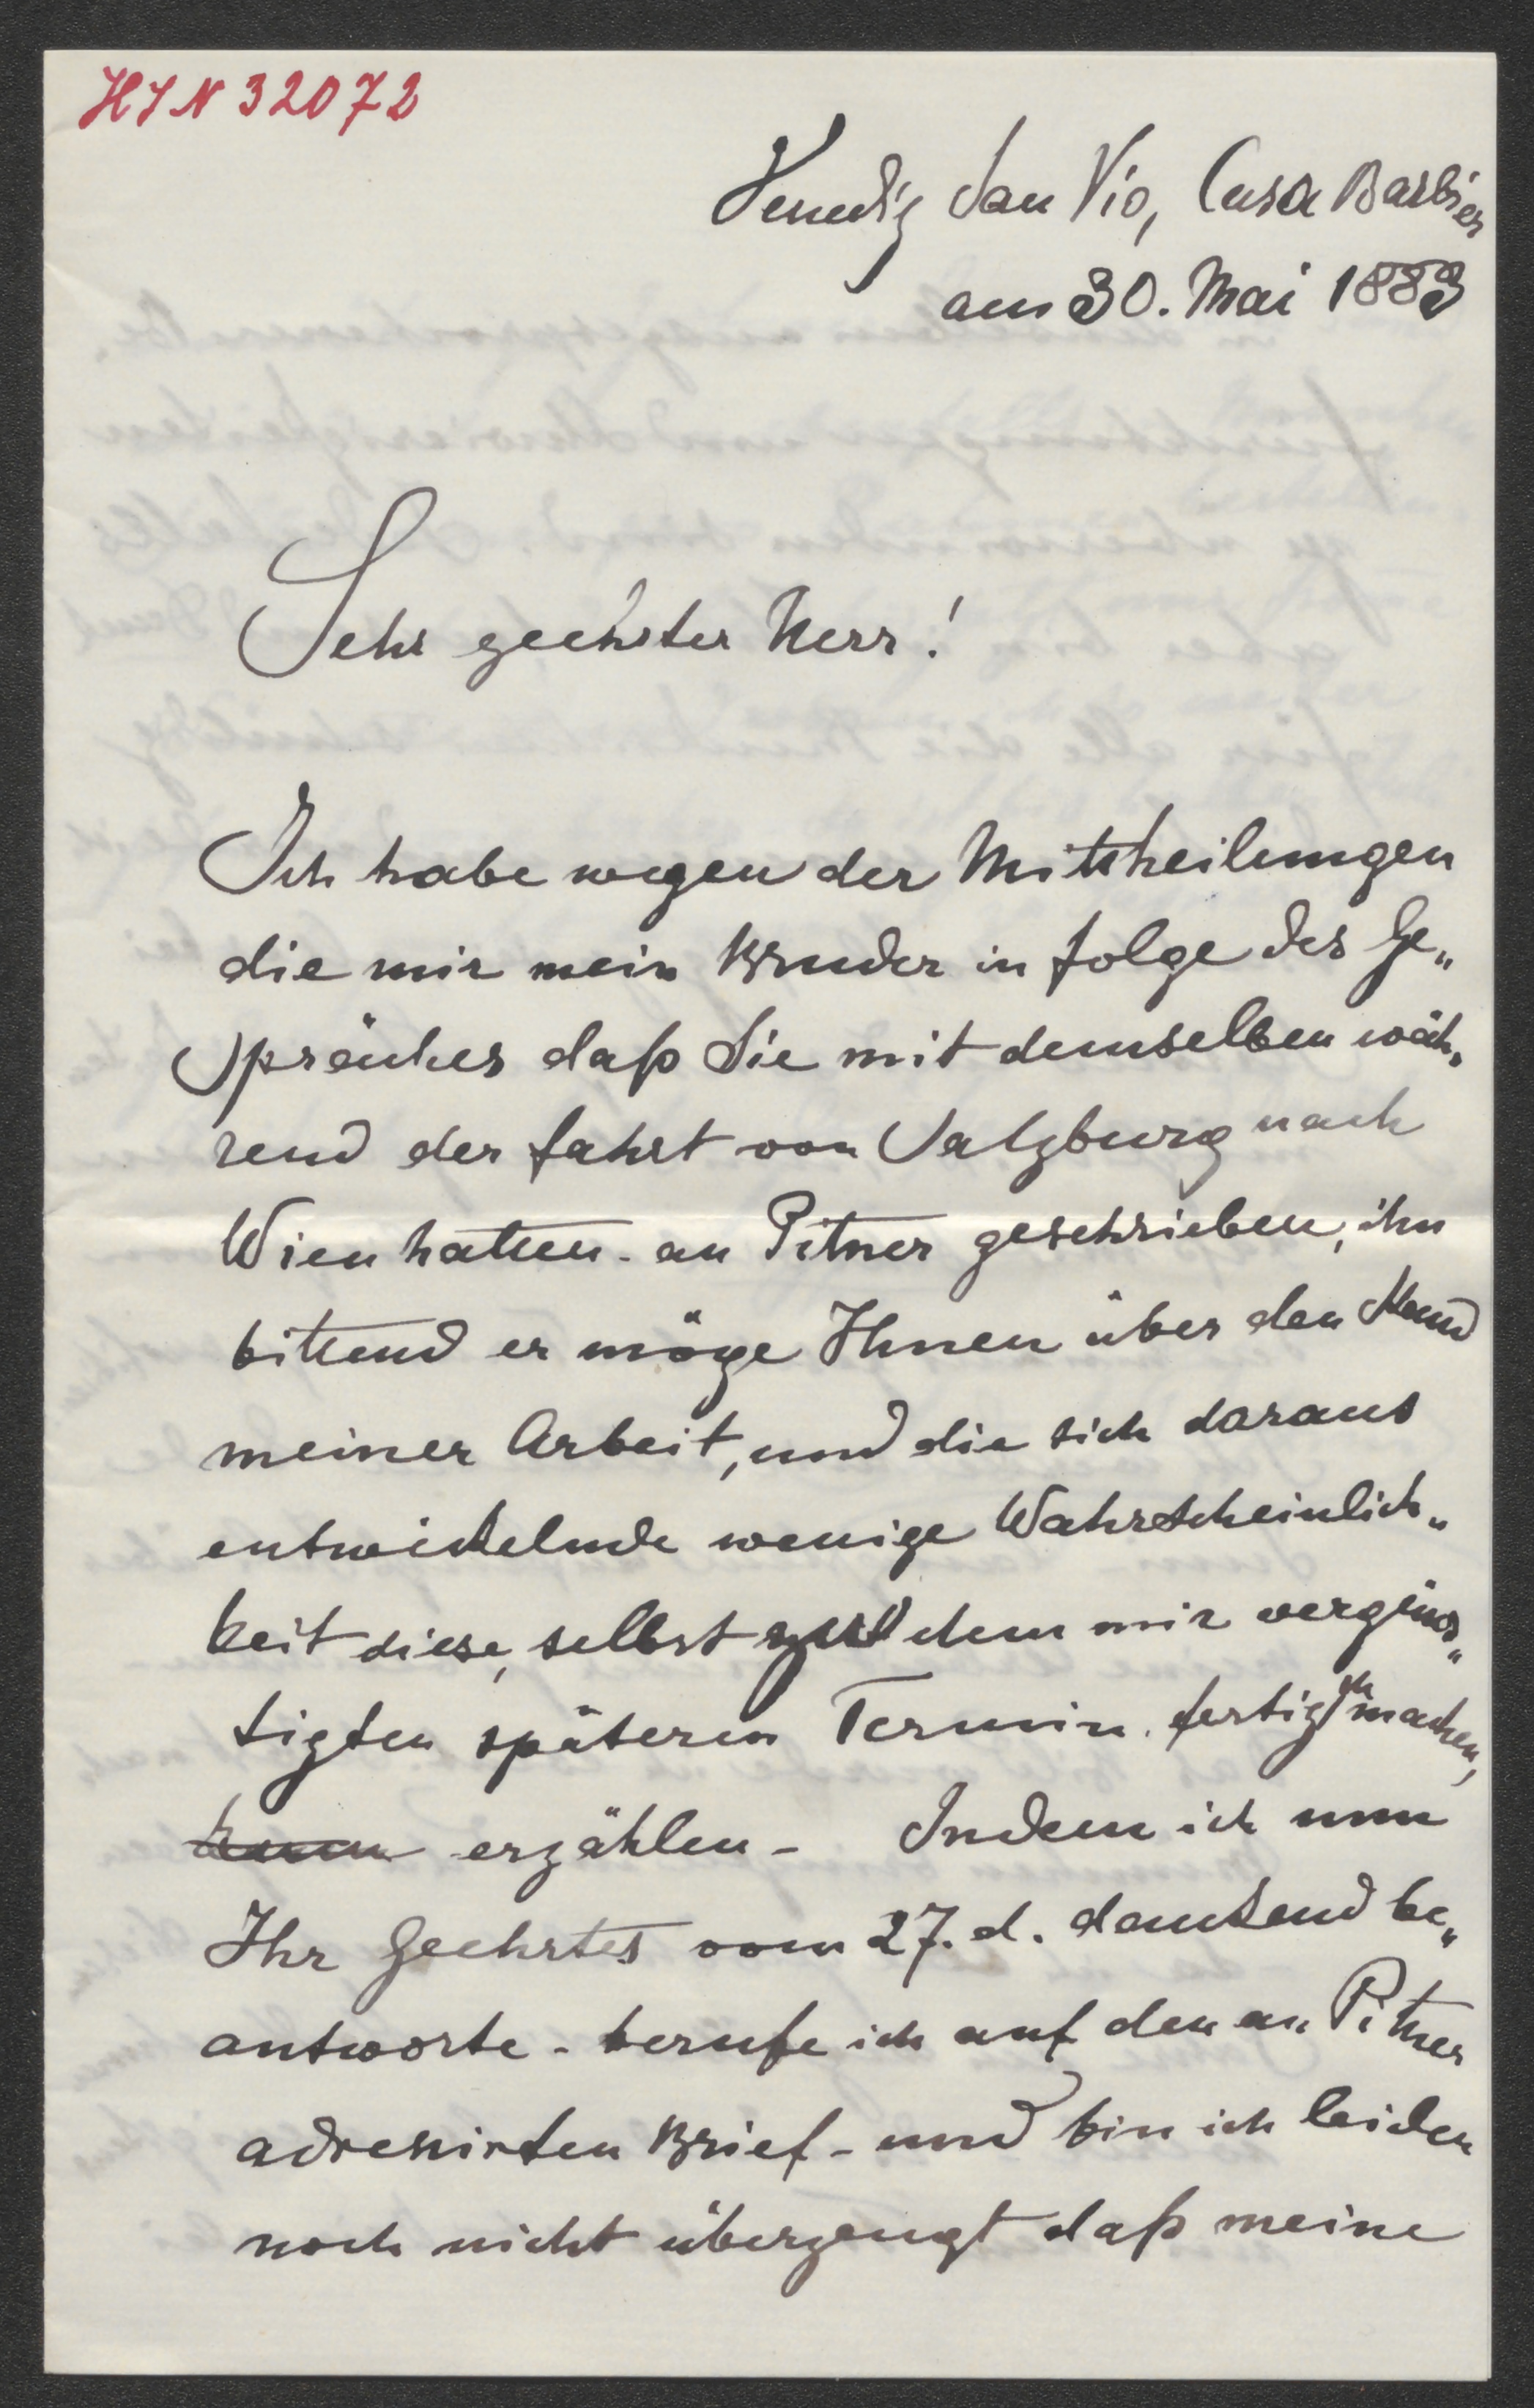 HIN 32072
Venedig San Vio, Casa Barbier
am 30. Mai 1883
Sehr geehrter Herr!
Ich habe wegen der Mittheilungen
die mir mein Bruder in folge des Ge„
spräches daß Sie mit demselben wäh„
rend der fahrt von Salzburg nach
Wien hatten - an Pitner geschrieben, ihn
bittend er möge Ihnen über den Stand
meiner Arbeit, und die sich daraus
entwickelnde wenige Wahrscheinlich„
keit diese, selbst dem mir vergüns„
tigten späteren Termin fertig zu machen,
erzählen - Indem ich nun
Ihr Geehrtes vom 27. d. dankend be„
antworte - berufe ich auf den an Pitner
adressirten Brief - und bin ich leider
noch nicht überzeugt daß meine